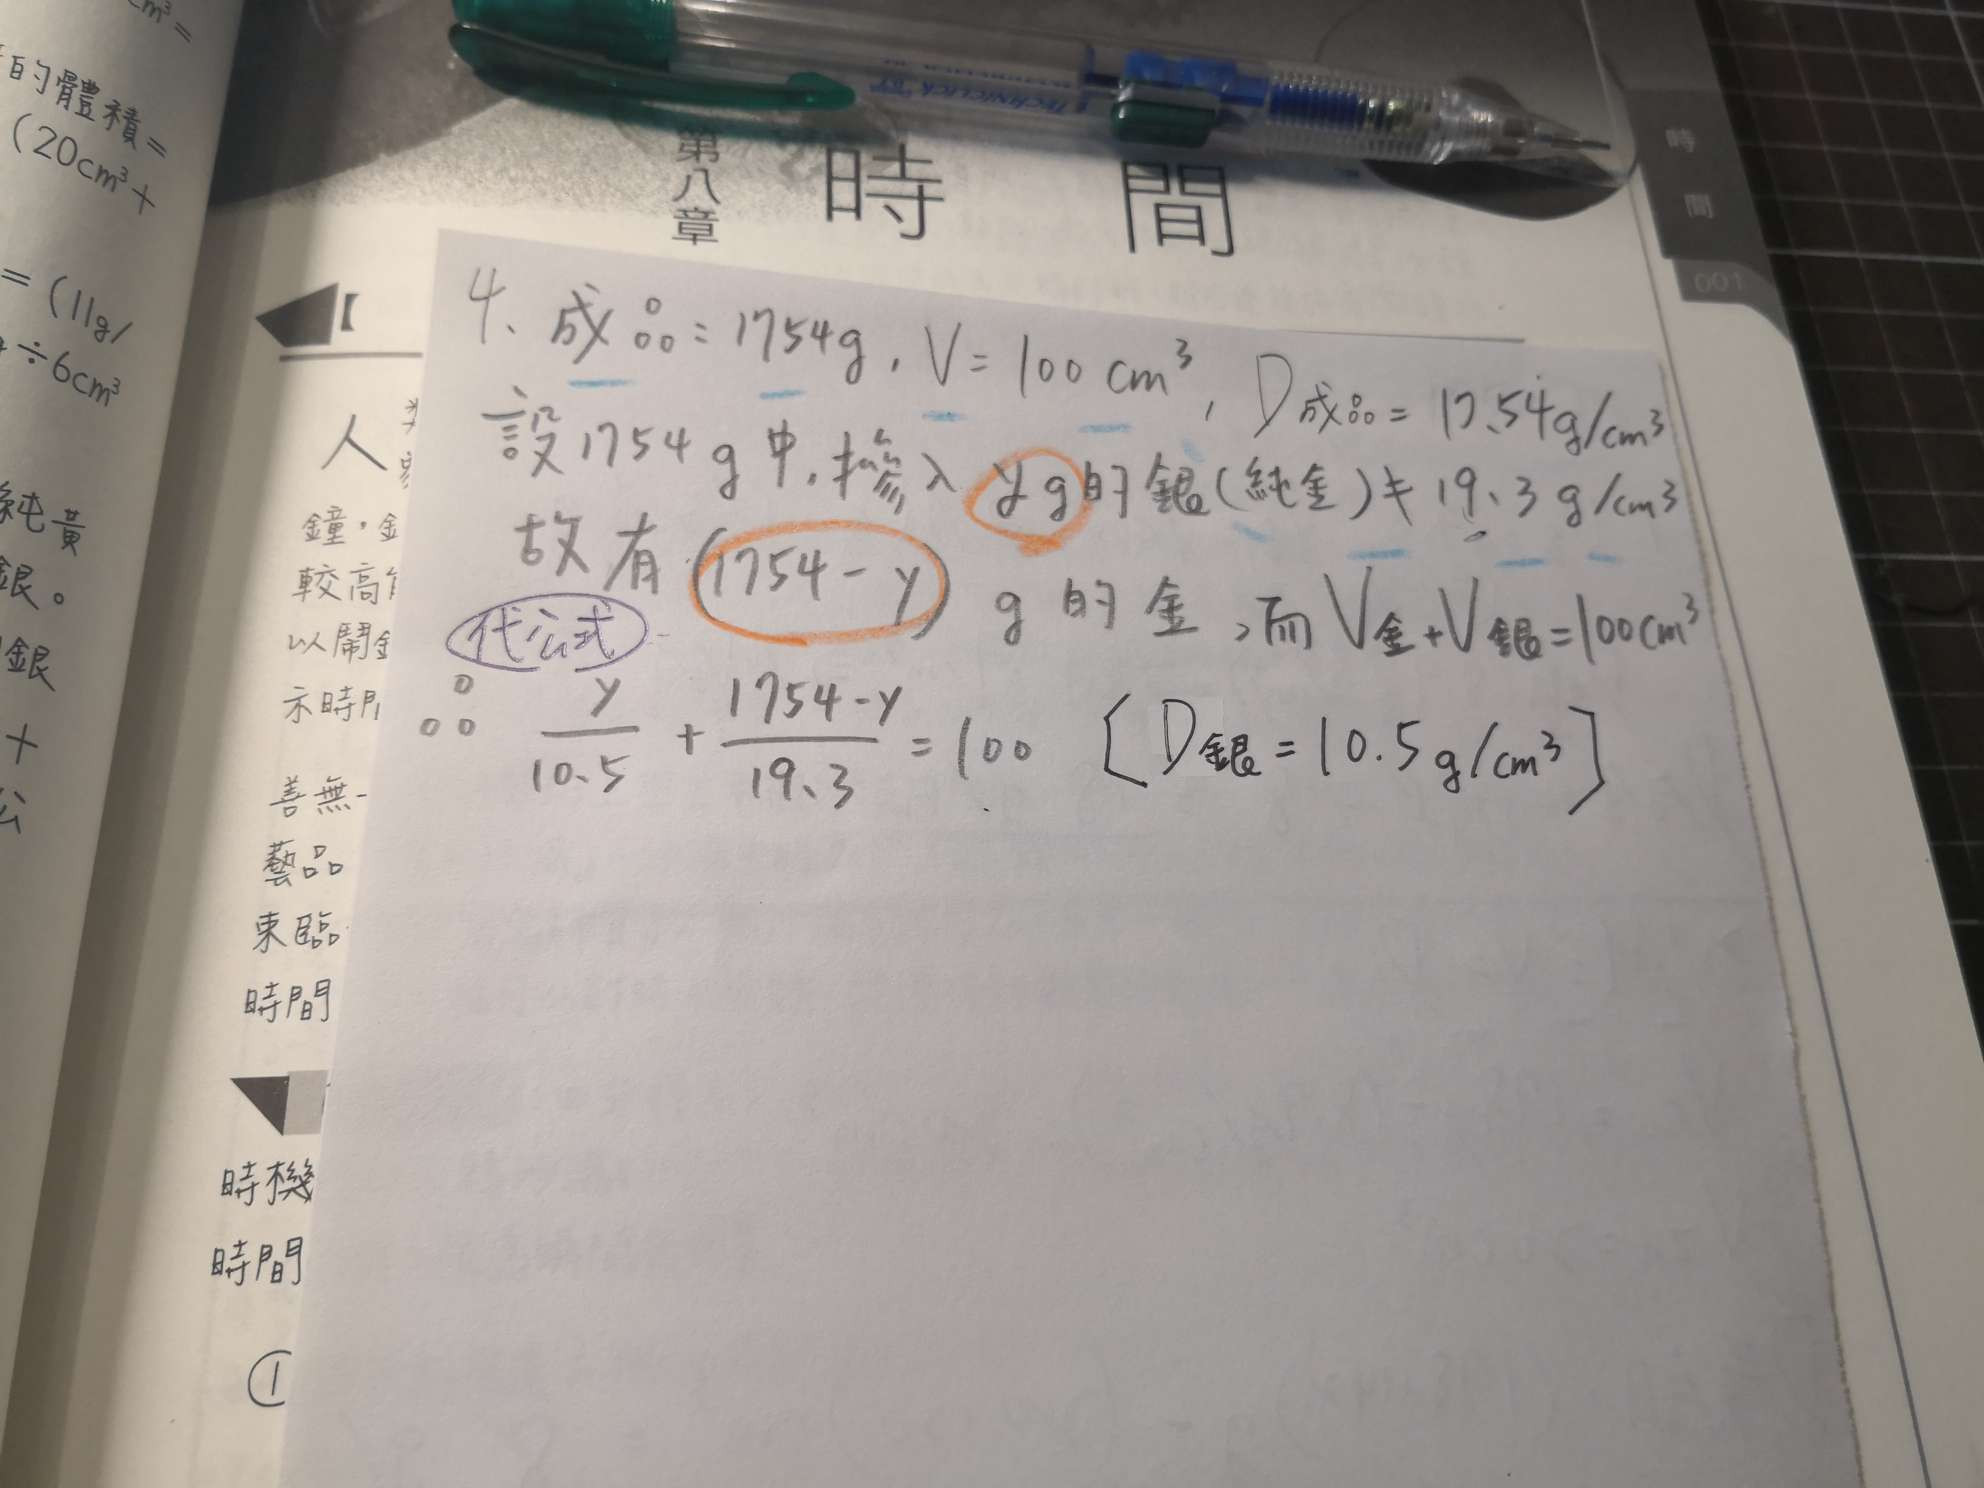 cm³=
的體積=
(20cm³+
=(11g/
÷6cm³
純黃
銀。
銀
+
公
TECHNICLICK
第八章 時間
時間
001
【
人
鐘,
較高
以鬧
示時
善無
藝品
東臨
時間
時機
時間
①
4、成品=1754g,V=100cm³,D成品=17.54g/cm³
設1754g中,摻入yg的銀(純金)≠19.3g/cm³
故有(1754-y)g的金,而V金+V銀=100cm³
代公式
∴ y/10.5 + 1754-y/19.3 = 100 [D銀=10.5g/cm³]